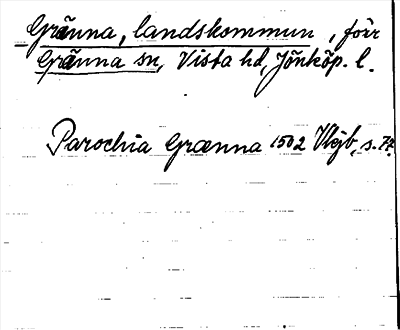 Gränna, landskommun, förr
Gränna sn, Vista hd, Jönköp. l.
Parochia Grænna 1502 Vlgjb, s. 72